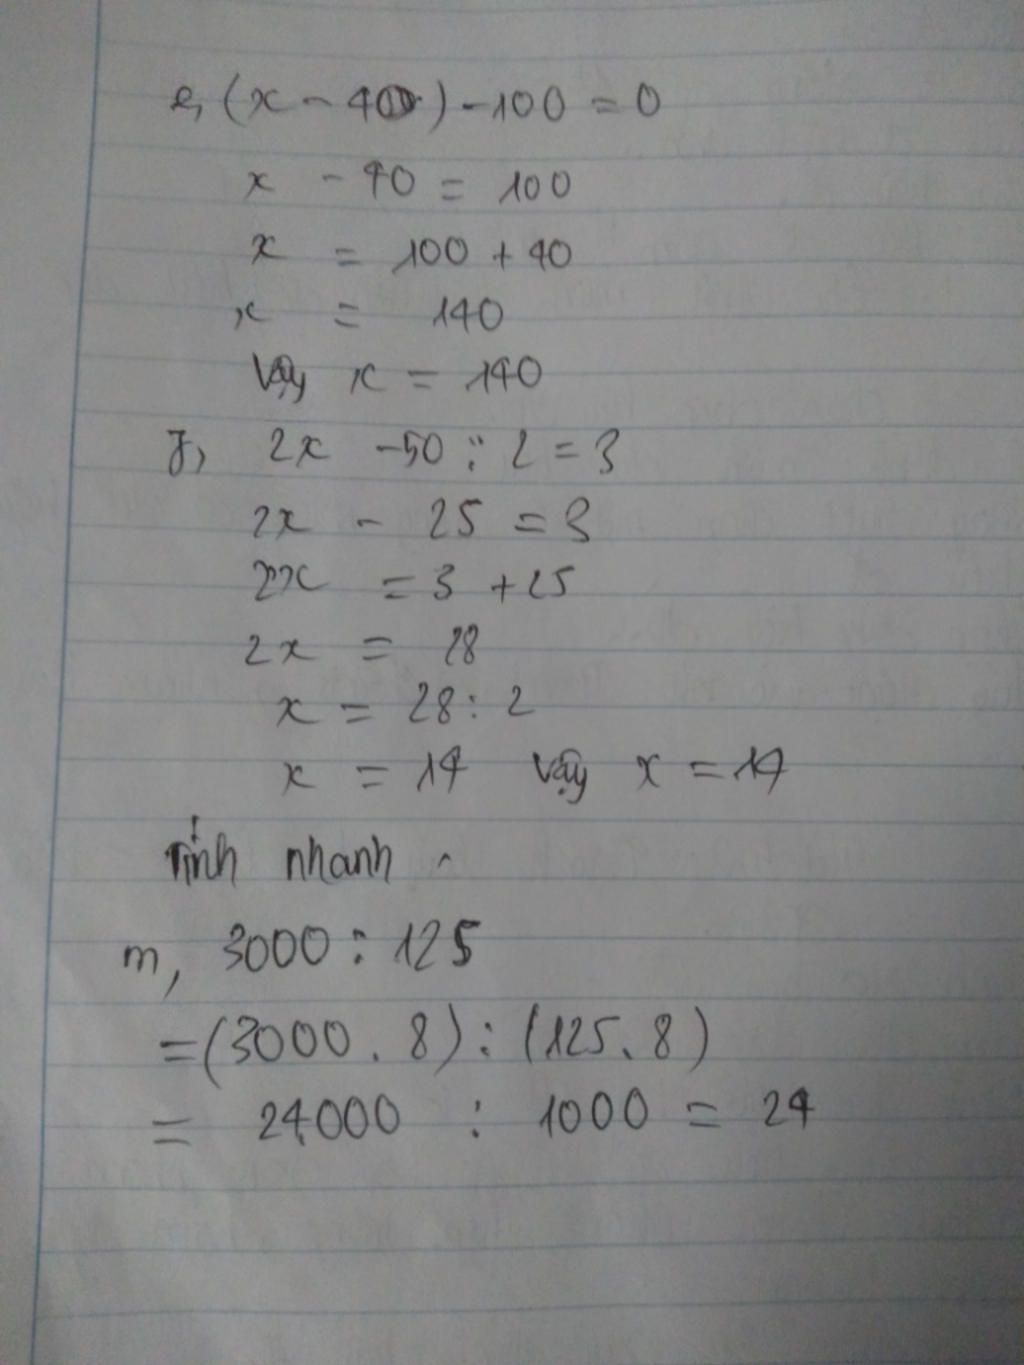 e, (x - 40) - 100 = 0
x - 40 = 100
x = 100 + 40
x = 140
Vậy x = 140
f, 2x - 50 : 2 = 3
2x - 25 = 3
2x = 3 + 25
2x = 28
x = 28 : 2
x = 14 Vậy x = 14
Tính nhanh
m, 3000 : 125
= (3000 . 8) : (125 . 8)
= 24000 : 1000 = 24